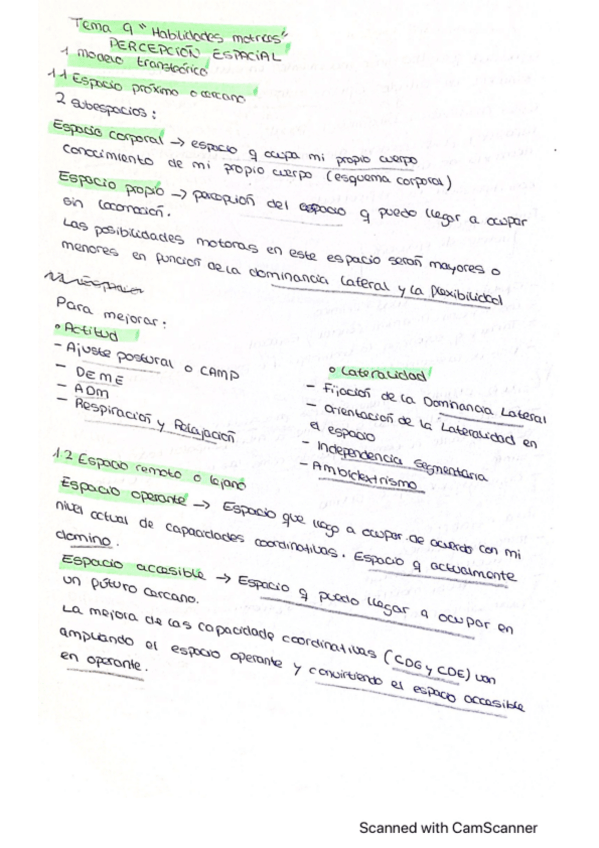 Tema 9 "Habilidades motrices"
PERCEPCIÓN ESPACIAL
1 modelo transteórico
1.1 Espacio próximo o cercano
2 subespacios:
Espacio corporal → espacio q ocupa mi propio cuerpo
conocimiento de mi propio cuerpo (esquema corporal)
Espacio propio → percepción del espacio q puedo llegar a ocupar
sin locomoción.
Las posibilidades motoras en este espacio serán mayores o
menores en función de la dominancia lateral y la flexibilidad
Para mejorar:
• Actitud
- Ajuste postural o CAMP
- DEME
- ADM
- Respiración y Relajación
• Lateralidad
- Fijación de la Dominancia Lateral
- Orientación de la Lateralidad en
el espacio
- Independencia Segmentaria
- Ambidextrismo
1.2 Espacio remoto o lejano
Espacio operante → Espacio que llego a ocupar de acuerdo con mi
nivel actual de capacidades coordinativas. Espacio q actualmente
domino.
Espacio accesible → Espacio q puedo llegar a ocupar en
un futuro cercano.
La mejora de las capacidade coordinativas (CDG y CDE) van
ampliando el espacio operante y convirtiendo el espacio accesible
en operante.
Scanned with CamScanner